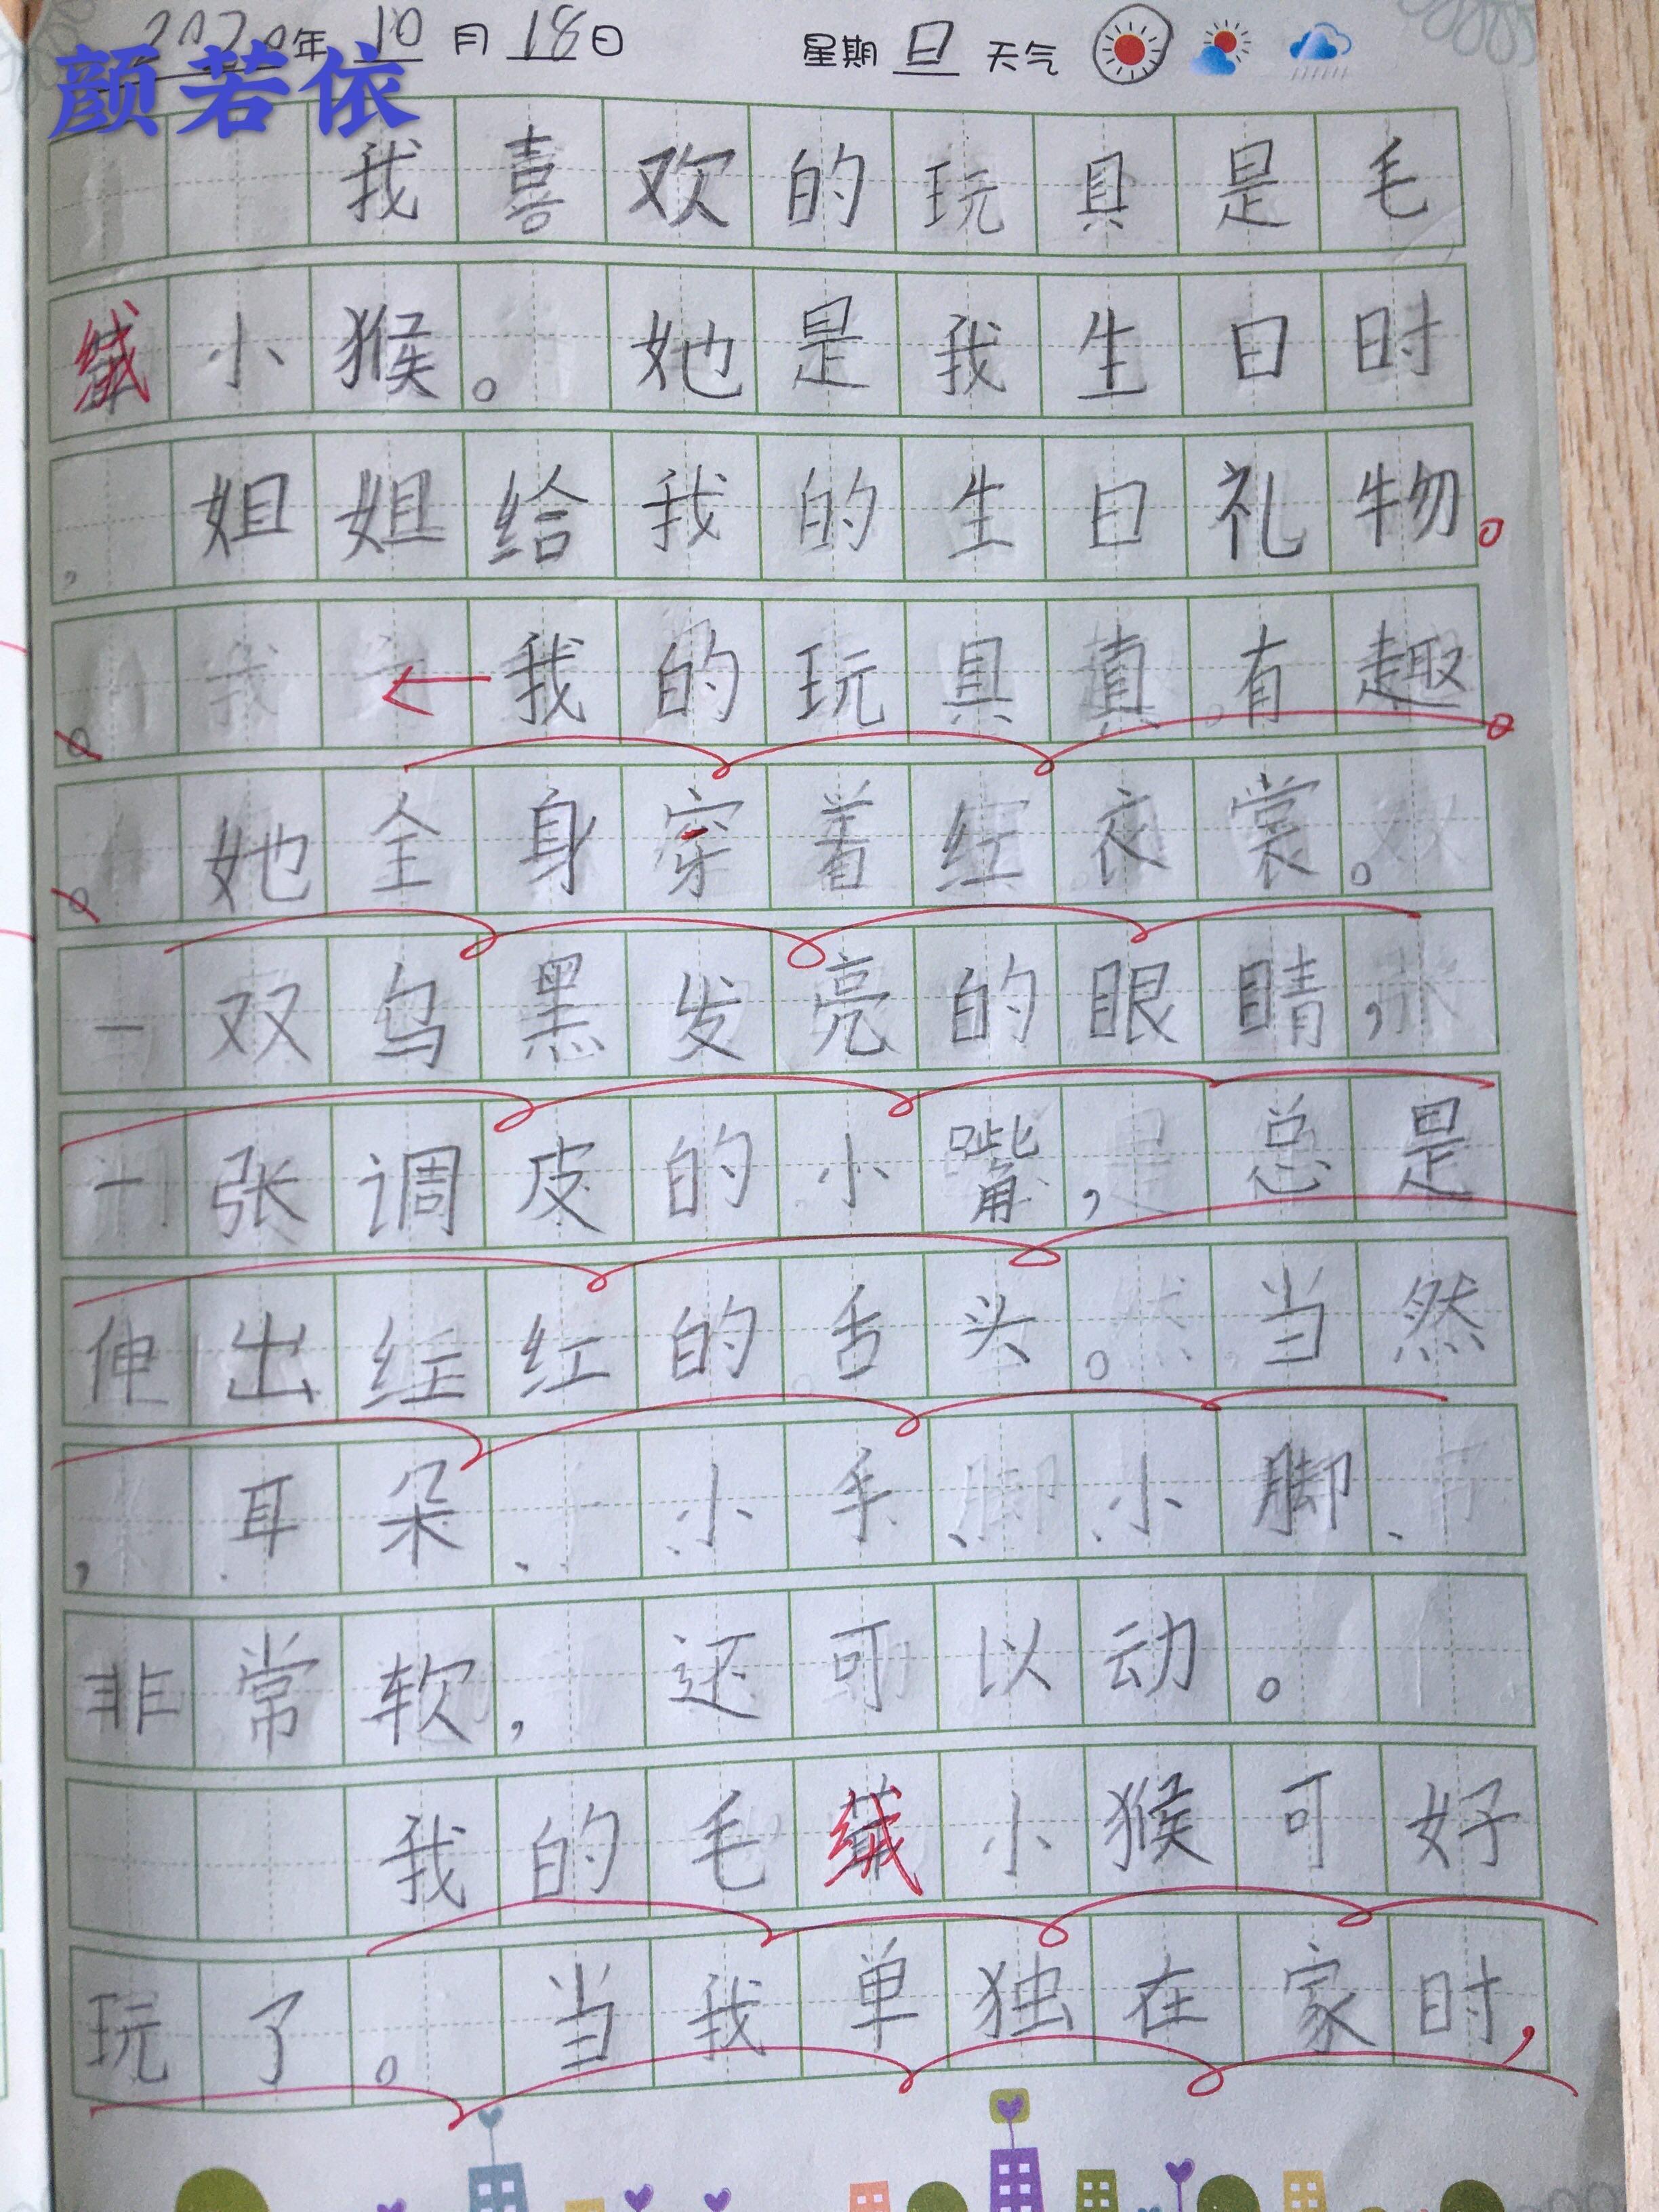 2020年10月18日 星期日 天气
颜若依
我喜欢的玩具是毛
绒小猴。她是我生日时
,姐姐给我的生日礼物。
。我的玩具真有趣。
。她全身穿着红衣裳。
一双乌黑发亮的眼睛,
一张调皮的小嘴,总是
伸出红红的舌头。当然
,耳朵、小手、小脚、
非常软,还可以动。
我的毛绒小猴可好
玩了。当我单独在家时,